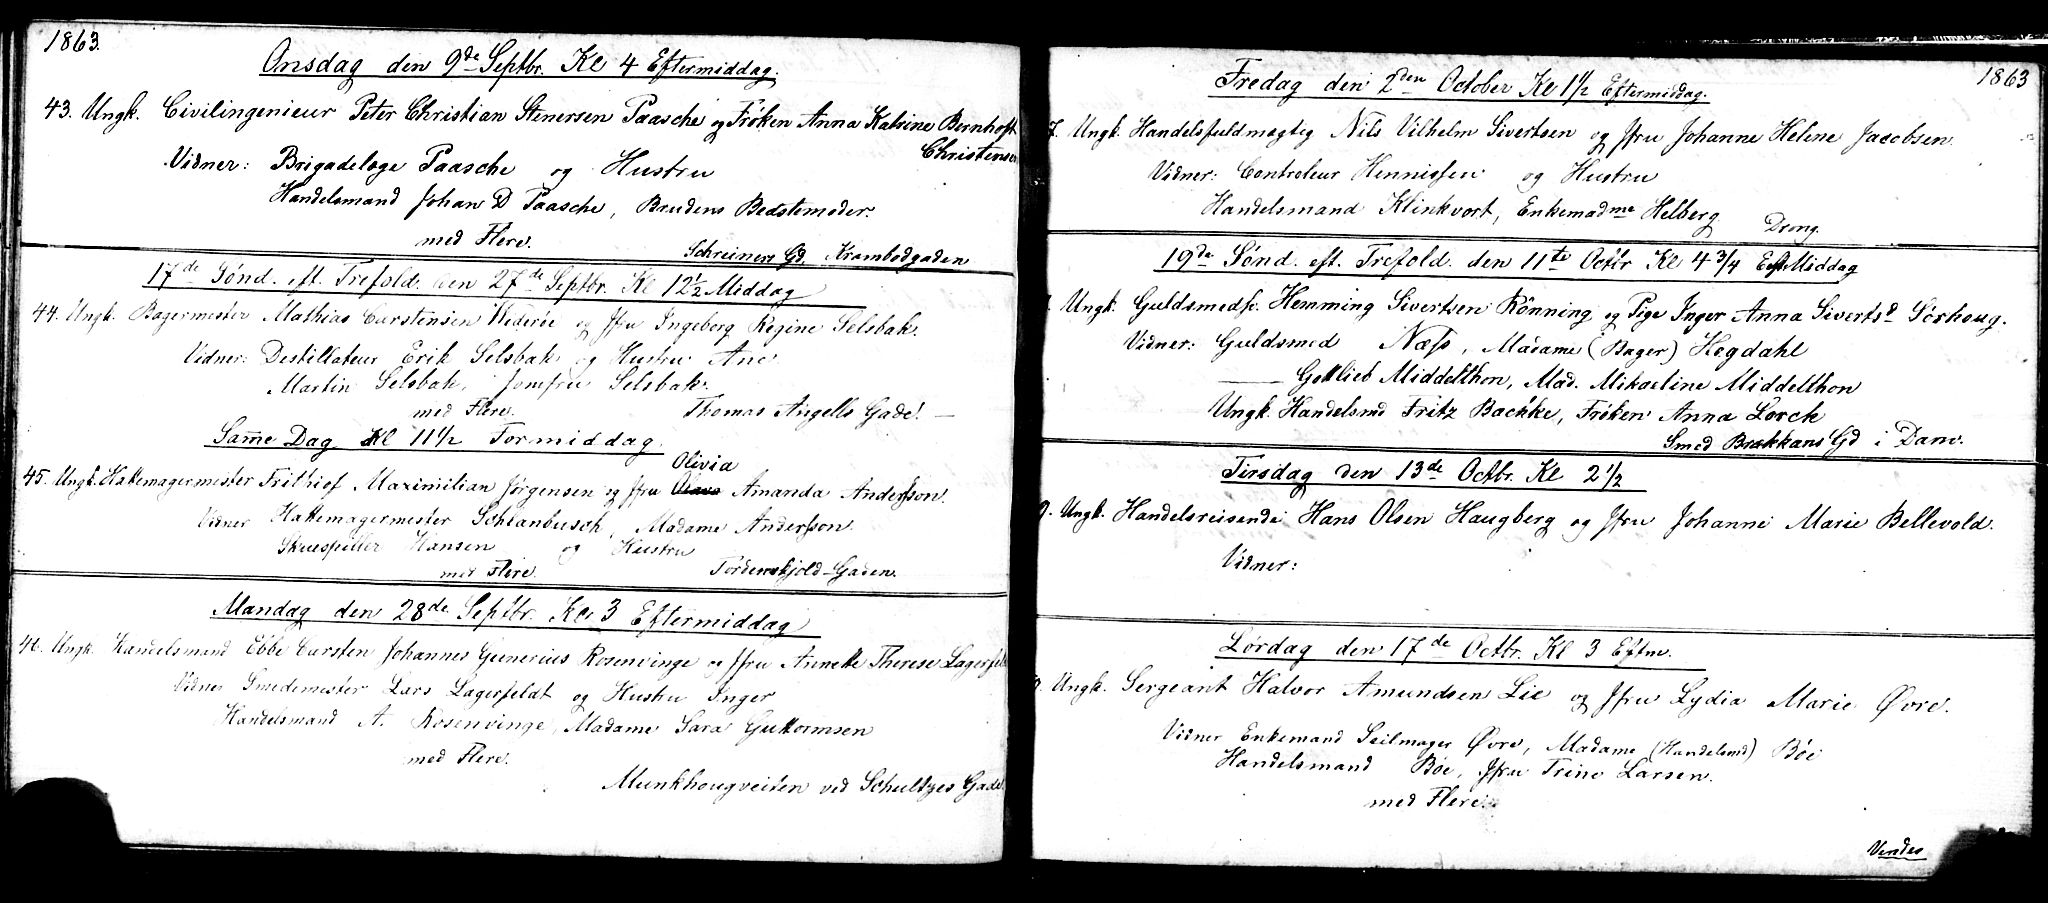 1863.
Onsdag den 9de Septbr. Kl 4 Eftermiddag.
43. Ungk. Civilingenieur Peter Christian Stenersen Paasche og Frøken Anna Katrine Bernhoft
Christensen
Vidner: Brigadelæge Paasche og Hustru
Handelsmand Johan D Paasche, Brudens Bedstemoder.
med Flere.
Schreiners Gd. Krambodgaden
17de Sønd. eft. Trefold. den 27de Septbr. Kl 12½ Middag
44. Ungk. Bagermester Mathias Carstensen Wederøe og Jfru Ingeborg Regine Selsbak.
Vidner: Destillateur Erik Selsbak og Hustru Ane
Martin Selsbak, Jomfru Selsbak.
med Flere. Thomas Angells Gade. —
Samme Dag Kl 11½ Formiddag.
Olivia
45. Ungk. Hattemagermester Frithiof Maximilian Jørgensen og Jfru Amanda Andersson.
Vidner Hattemagermester Schwanbusch, Madame Andersson.
Skuespiller Hansen og Hustru
med Flere. Tordenskjold-Gaden.
Mandag den 28de Septbr. Kl. 3 Eftermiddag
46. Ungk. Handelsmand Ebbe Carsten Johannes Gunerius Rosenvinge og Jfru Annette Therese Lagerfeldt
Vidner Smedemester Lars Lagerfeldt og Hustru Inger
Handelsmand A. Rosenvinge, Madame Sara Guttormsen
med Flere.
Munkhougveiten ved Schultzes Gade.
1863
Fredag den 2den October Kl 1½ Eftermiddag.
7. Ungk. Handelsfuldmægtig Nils Vilhelm Sivertsen og Jfru Johanne Helene Jacobsen.
Vidner: Controleur Hennissen og Hustru
Handelsmand Klinkvort, Enkemadme Helberg
Drong.
19de Sønd. eft. Trefold. den 11te Octbr Kl 4¾ EftMiddag
Ungk. Guldsmedsv. Hemming Sivertsen Rönning og Pige Inger Anna Sivertsd Sörhoug.
Vidner: Guldsmed Næss, Madame (Bager) Høgdahl
— Gottlieb Middelthon, Mad. Mikaeline Middelthon
Ungk. Handelsmd Fritz Bachke, Frøken Anna Lorck
Smed Brækkans Gd i Danv.
Tirsdag den 13de Octbr. Kl 2½
9. Ungk. Handelsreisende Hans Olsen Haugberg og Jfru Johanne Marie Bellevold.
Vidner:
Lørdag den 17de Octbr. Kl 3 Eftm.
Ungk. Sergeant Halvor Amundsen Lie og Jfru Lydia Marie Øvre.
Vidner Enkemand Seilmager Øvre, Madame (Handelsmd) Böe
Handelsmand Böe, Jfru Trine Larsen.
med Flere.
Vendes